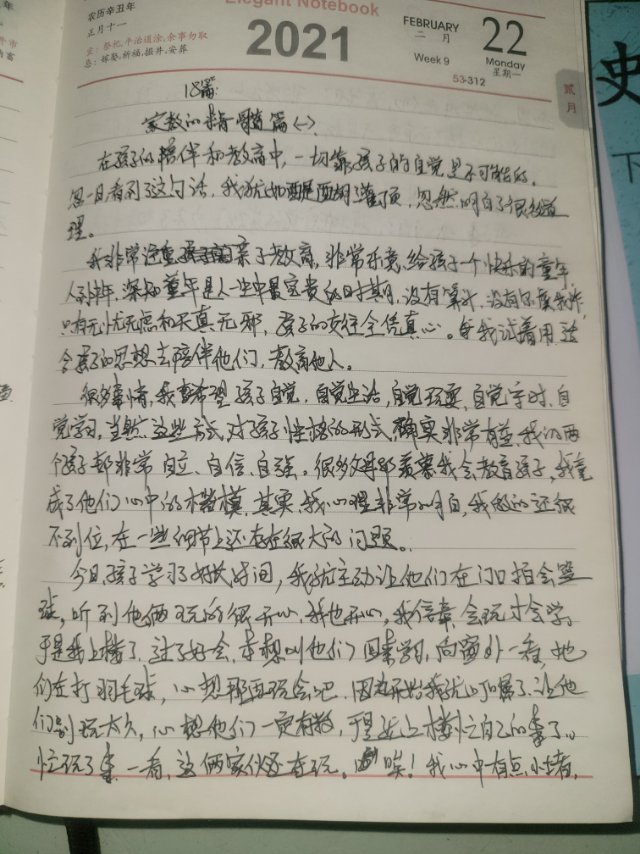 农历辛丑年
正月十一
宜：祭祀，平治道涂，余事勿取
忌：嫁娶，祈福，掘井，安葬
Elegant Notebook
2021
FEBRUARY
二 月
Week 9
22
Monday
星期一
53-312
贰月
史
下
18篇：
家教的精髓篇（一）
在孩子的陪伴和教育中，一切靠孩子的自觉是不可能的。
忽一日看到了这句话，我犹如醍醐灌顶，忽然明白了很多道
理。
我非常注重亲子教育，非常乐意给孩子一个快乐的童年，
深知童年是人一生中最宝贵的时期，没有算计，没有
只有无忧无虑和天真无邪，孩子的交往全凭真心。我试着用
孩子的思想去陪伴他们，教育他人。
很多事情，我都希望孩子自觉，自觉生活，自觉玩耍，自觉守时，自
觉学习，当然这些方式，对孩子性格的形式，确实非常有益，我的两
个孩子都非常自立、自信、自强。很多父母都羡慕我会教育孩子，我竟
成了他们心中的楷模，其实，我心理非常明白，我做的还很
不到位，在一些细节上还存在很大的问题。
今日孩子学习了好长时间，我就主动让他们在门口拍会篮
球，听到他俩玩的很开心，我也开心，我信奉，会玩才会学，
于是我上楼了，过了好会，本想叫他们回来学习，向窗外一看，她
们在打羽毛球，心想那再玩会吧，因为开始我就叮嘱了，让他
们别玩太久，心想他们一定有数，于是就上楼忙自己的事了。
忙完了事，一看，这俩家伙还在玩。唉！我心中有点小堵，